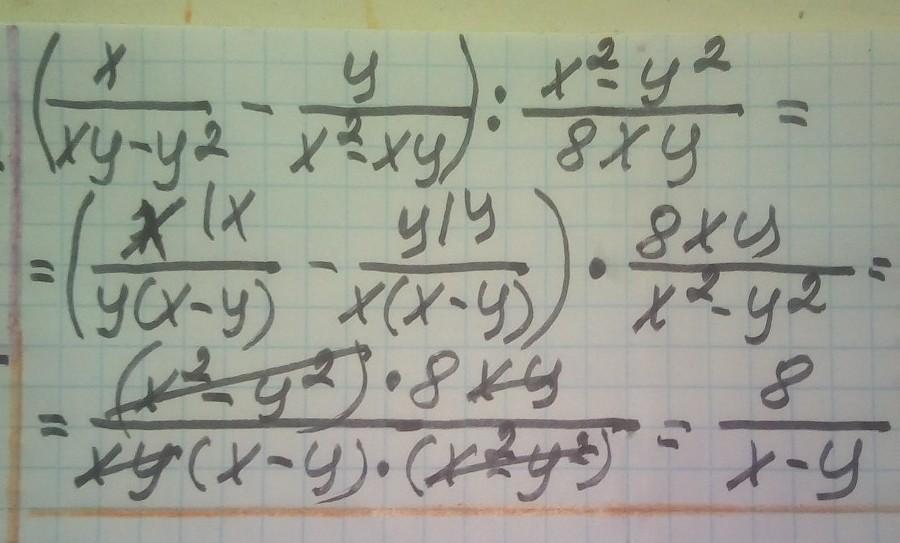 (x/(xy-y²) - y/(x²-xy)) : (x²-y²)/(8xy) =
= (x|x/(y(x-y)) - y|y/(x(x-y))) · 8xy/(x²-y²) =
= ((x²-y²)·8xy)/(xy(x-y)·(x²-y²)) = 8/(x-y)